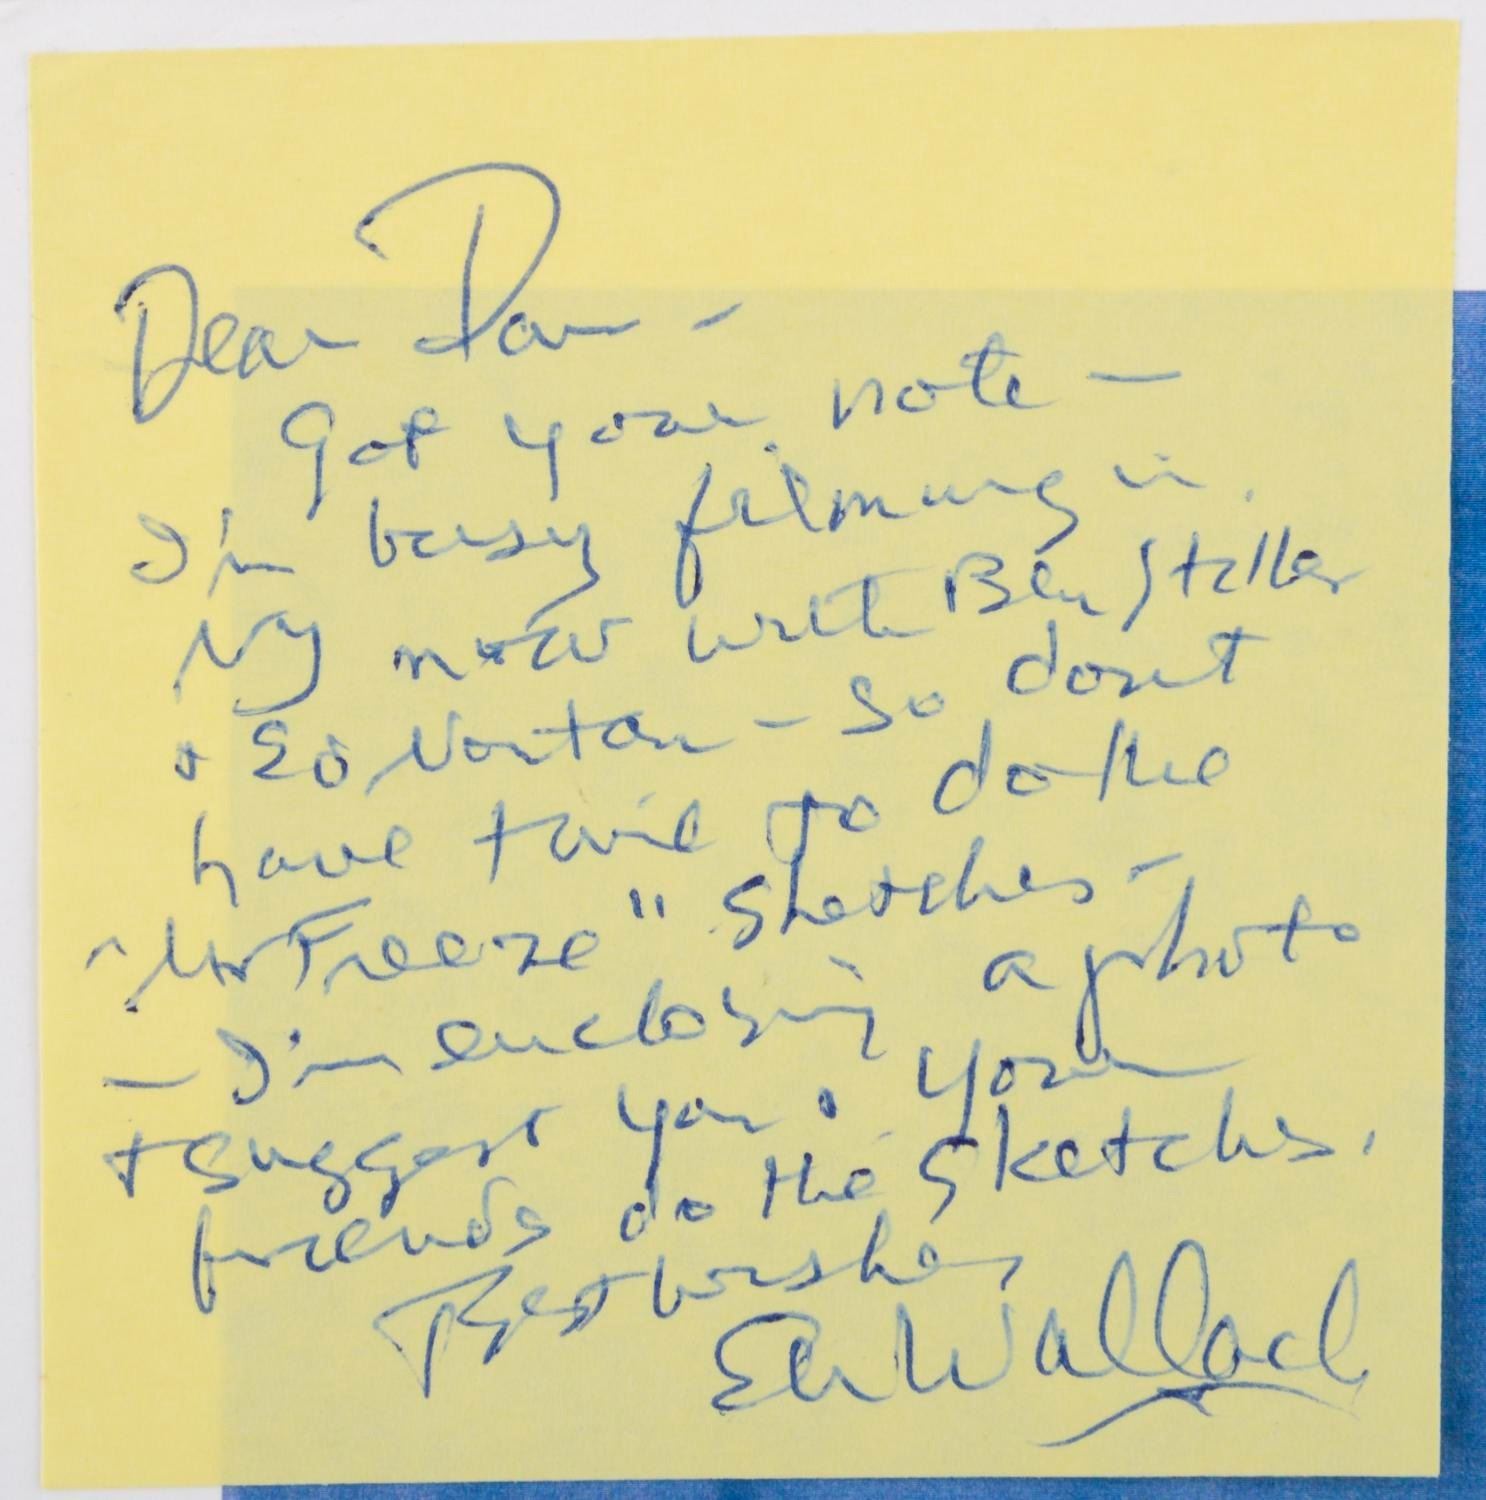 Dear Dan -
Got your note -
I'm busy filming in
NY now with Ben Stiller
+ Ed Norton - So don't
have time to do the
"Mr Freeze" sketches -
- I'm enclosing a photo
+ suggest you + your
friends do the sketches.
Best wishes
Eli Wallach